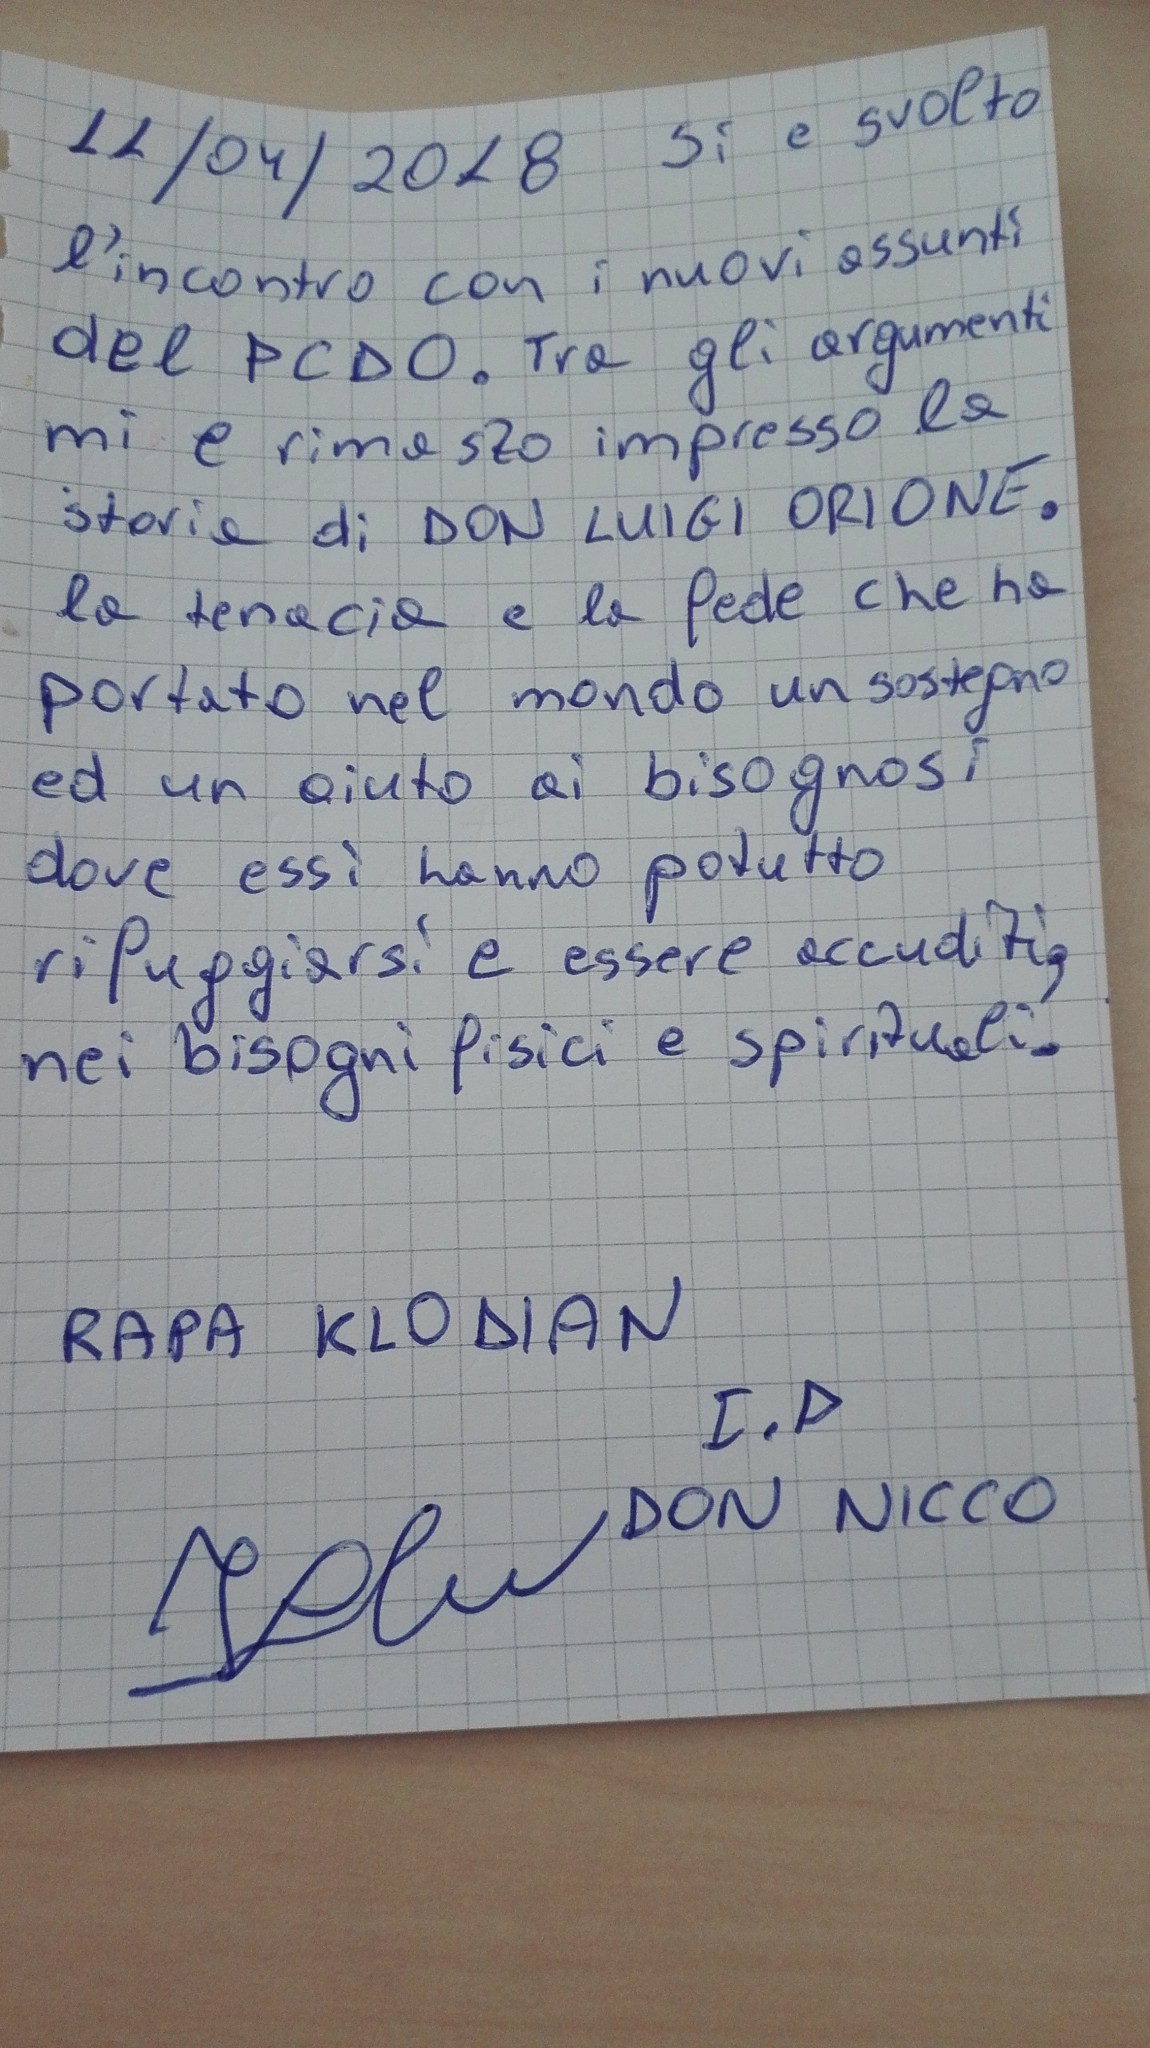 11/04/2018 Si e svolto
l'incontro con i nuovi assunti
del PCDO. Tra gli argumenti
mi e rimasto impresso la
storia di DON LUIGI ORIONE.
la tenacia e la fede che ha
portato nel mondo un sostegno
ed un aiuto ai bisognosi
dove essi hanno potutto
rifuggiarsi e essere accuditi,
nei bisogni fisici e spirituali.
RAPA KLODIAN
I.P
DON NICCO